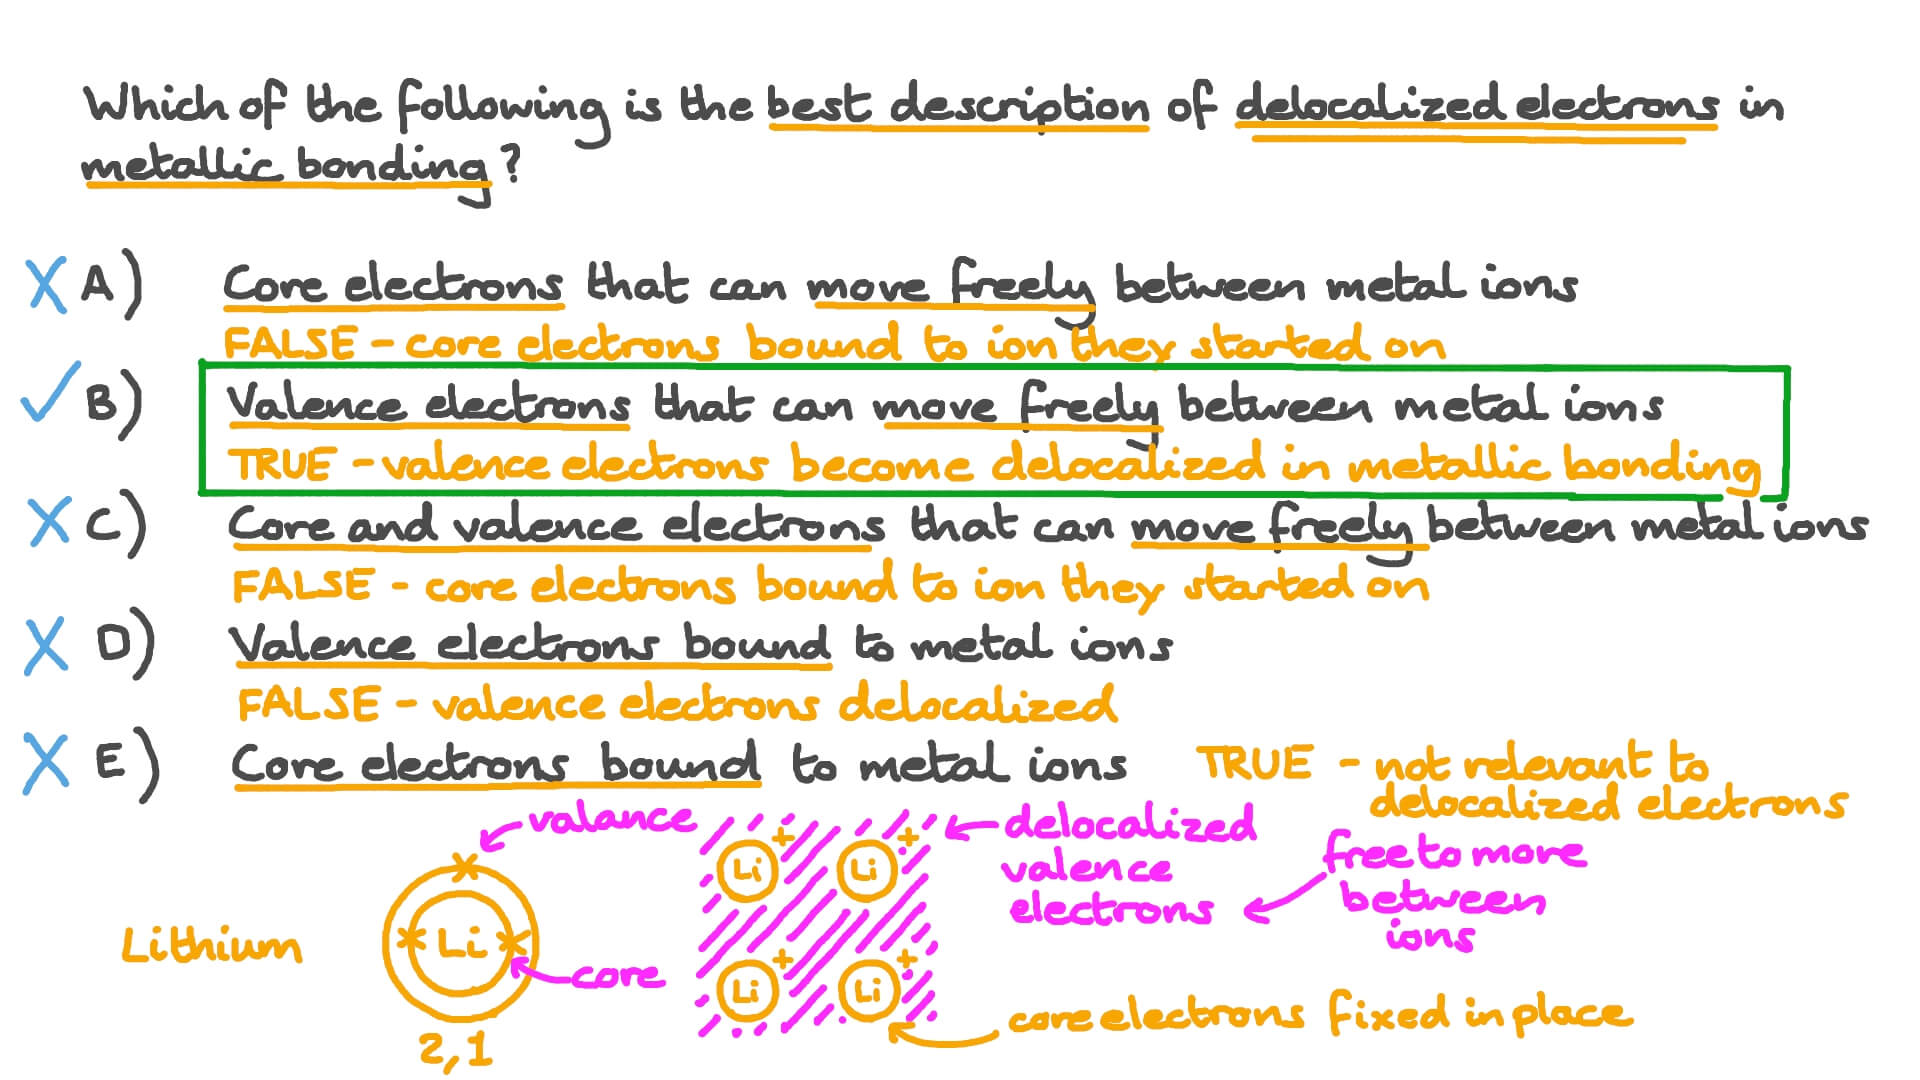 Which of the following is the best description of delocalized electrons in
metallic bonding?
A) Core electrons that can move freely between metal ions
FALSE - core electrons bound to ion they started on
B) Valence electrons that can move freely between metal ions
TRUE - valence electrons become delocalized in metallic bonding
C) Core and valence electrons that can move freely between metal ions
FALSE - core electrons bound to ion they started on
D) Valence electrons bound to metal ions
FALSE - valence electrons delocalized
E) Core electrons bound to metal ions TRUE - not relevant to
delocalized electrons
valance
delocalized
valence
electrons
free to more
between
ions
Li +
Li +
Lithium
Li
core
Li +
Li +
core electrons fixed in place
2,1